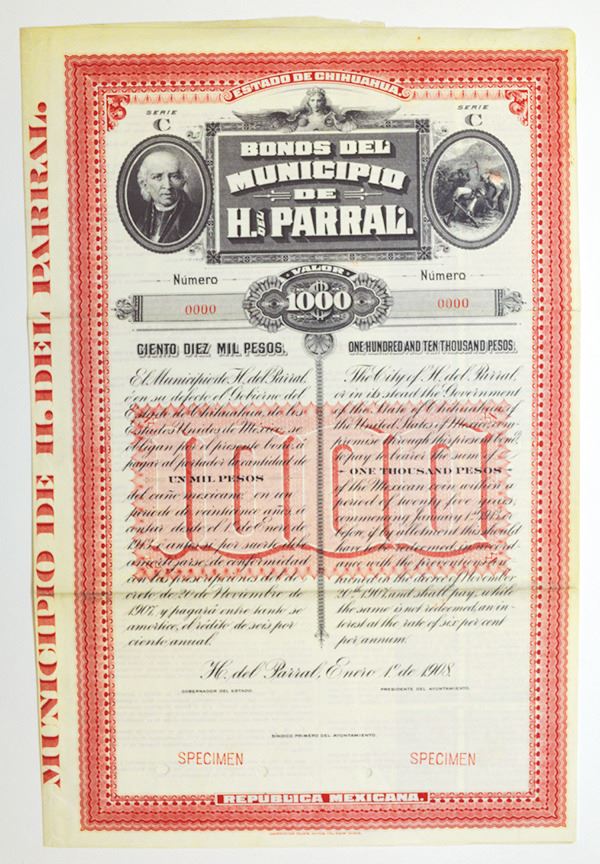 ESTADO DE CHIHUAHUA.
SERIE
C
SERIE
C
BONOS DEL
MUNICIPIO
DE
H. DEL PARRAL.
Número
0000
VALOR
1000
Número
0000
CIENTO DIEZ MIL PESOS.
El Municipio de H. del Parral,
ó en su defecto el Gobierno del
Estado de Chihuahua, de los
Estados Unidos de Mexico, se
obligan por el presente bono, á
pagar al portador la cantidad de
UN MIL PESOS
del cuño mexicano, en un
período de veinticinco años, á
contar desde el 1º de Enero de
antes, por suerte, le
de conformidad
con las prescripciones del de-
creto de 20 de Noviembre de
1907, y pagará entre tanto se
amortice, el rédito de seis por
ciento anual.
ONE HUNDRED AND TEN THOUSAND PESOS.
The City of H. del Parral,
or in its stead the Government
of the State of Chihuahua, of
the United States of Mexico, com-
promise through the present bond
to pay to bearer the sum
ONE THOUSAND PESOS
of the Mexican coin within a
period of twenty five years,
commencing January 1st
before, if by allotment this should
have been redeemed, in accord-
ance with the preventions con-
tained in the decree of November
20th 1907, and shall pay, while
the same is not redeemed, an in-
terest at the rate of six per cent
per annum.
1000
H. del Parral, Enero 1º de 1908.
GOBERNADOR DEL ESTADO.
PRESIDENTE DEL AYUNTAMIENTO.
SINDICO PRIMERO DEL AYUNTAMIENTO.
SPECIMEN
SPECIMEN
REPÚBLICA MEXICANA.
MUNICIPIO DE H. DEL PARRAL.